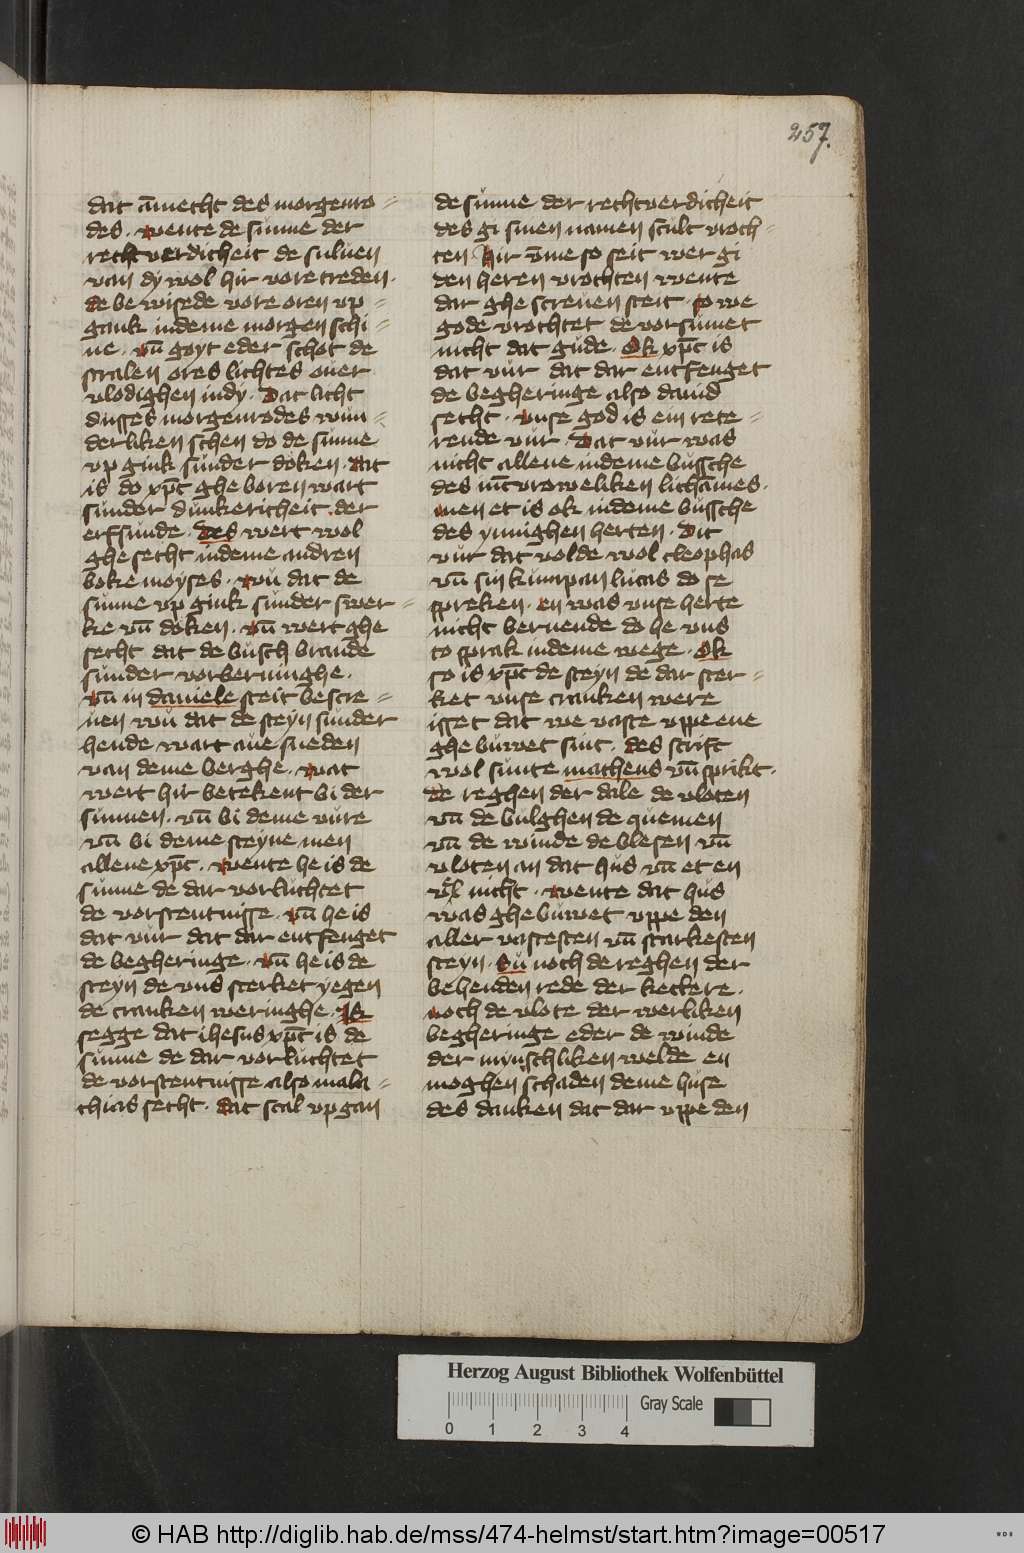 257.
dat āmecht des morgenro=
des. wente de sunne der
rechtverdicheit de suluen
van dy wol hir vore treden.
de bewisede vore oren vp=
gank in deme morgen schi=
ne. vn̄ goyt eder schot de
stralen ores lichtes ouer
vlodighen in dy. Dat licht
dusses morgenrodes wun=
derliken schen do de sunne
vp gink sunder doken. dat
is do xp̄c ghe boren wart
sunder dunkericheit der
erfsunde. Des wert wol
ghe secht in deme andren
boke moyses. wů dat de
sunne vp gink sunder swer=
ke vn̄ doken. vn̄ wert ghe
secht dat de busch brande
sunder vorberninghe.
vn̄ in daniele steit bescre=
uen wů dat de steyn sunder
hende wart aue sneden
van deme berghe. wat
wert hir betekent bi der
sunnen. vn̄ bi deme vure
vn̄ bi deme steyne men
allene xp̄c. wente he is de
sunne de dar vorluchtet
de vorstentnisse. vn̄ he is
dat vur dat dar entfenget
de begheringe. vn̄ he is de
steyn de vns sterket yegen
de cranken weringhe. Ik
segge dat ihesus xp̄c is de
sunne de dar vorluchtet
de vorstentnisse also mala=
chias secht. dat scal vp gan
de sunne der rechtverdicheit
des gi sinen namen scult vroch=
ten hir v̄me so seit wer gi
den heren vrochten wente
dar ghe screuen steit so we
gode vrochtet de vorsumet
nicht dat gude. Ok xp̄c is
dat vur dat dar entfenget
de begheringe also dauid
secht. vnse god is ein vete=
rende vur. Dat vur was
nicht allene in deme bussche
des iūcvroweliken lichames.
men et is ok in deme bussche
des ynnighen herten. Dit
vur dat volde wol cleophas
vn̄ sin kumpan lucas do se
spreken. en was vnse herte
nicht bernende do he vns
to sprak in deme wege. Ok
so is xp̄c de steyn de dar ster=
ket vnse cranken were
isset dat we vaste vppe ene
ghe buwet sint. des scrift
wol sunte matheus vn̄ sprikt.
de reghen der dale de vloten
vn̄ de bulghen de quemen
vn̄ de winde de blesen vn̄
vloten an dat hus vn̄ et en
vel nicht. wente dat hus
was ghe buwet vppe den
aller vastesten vn̄ starkesten
steyn. Sů noch de reghen der
behenden rede der kettere.
noch de vlote der werliken
begheringe eder de winde
der mynschliken welde en
moghen schaden deme huse
des danken dat dar vppe den
Herzog August Bibliothek Wolfenbüttel
Gray Scale
0 1 2 3 4
© HAB http://diglib.hab.de/mss/474-helmst/start.htm?image=00517